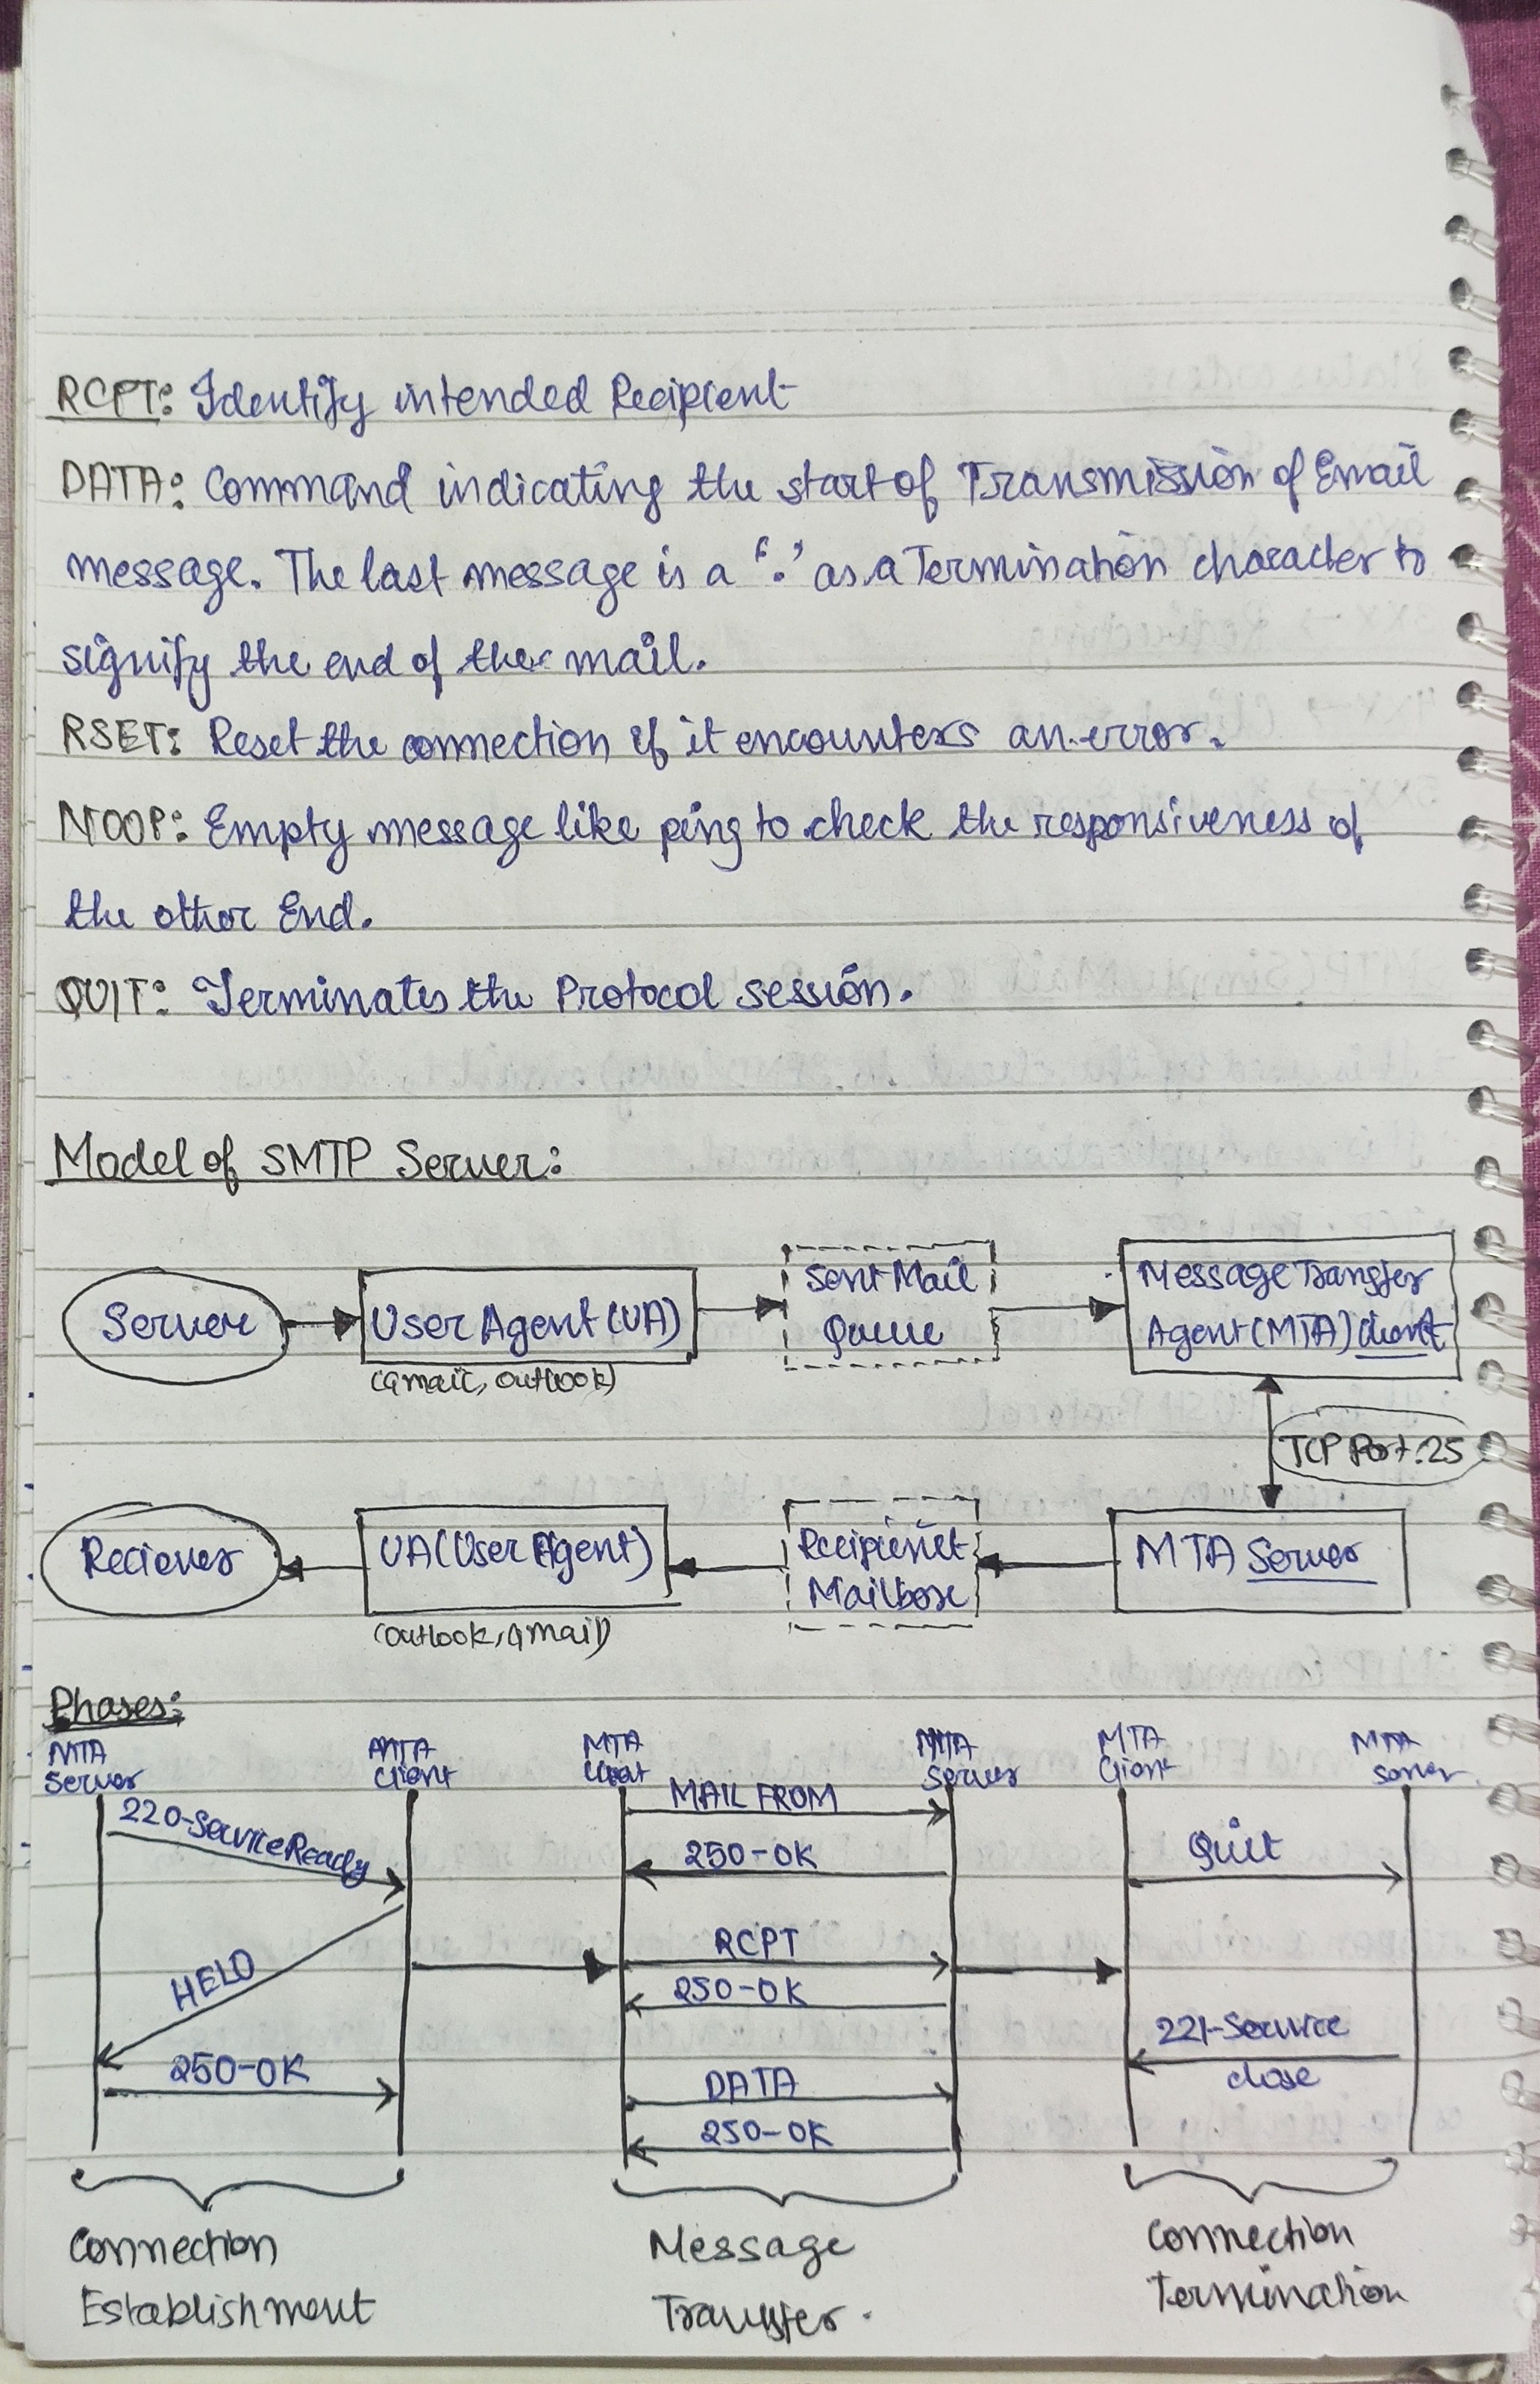 RCPT: Identify intended Recipient
DATA: Command indicating the start of Transmission of Email
message. The last message is a '.' as a Termination character to
signify the end of the mail.
RSET: Reset the connection if it encounters an error.
NOOP: Empty message like ping to check the responsiveness of
the other End.
QUIT: Terminates the Protocol session.
Model of SMTP Server:
Server
User Agent (UA)
(Gmail, outlook)
Sent Mail
Queue
Message Transfer
Agent (MTA) client
TCP Port:25
Reciever
UA (User Agent)
(outlook, Gmail)
Recipient
Mailbox
MTA Server
Phases:
MTA
Server
MTA
Client
220-Service Ready
HELO
250-OK
Connection
Establishment
MTA
Client
MTA
Server
MAIL FROM
250-OK
RCPT
250-OK
DATA
250-OK
Message
Transfer.
MTA
Client
MTA
Server
Quit
221-Service
close
Connection
Termination